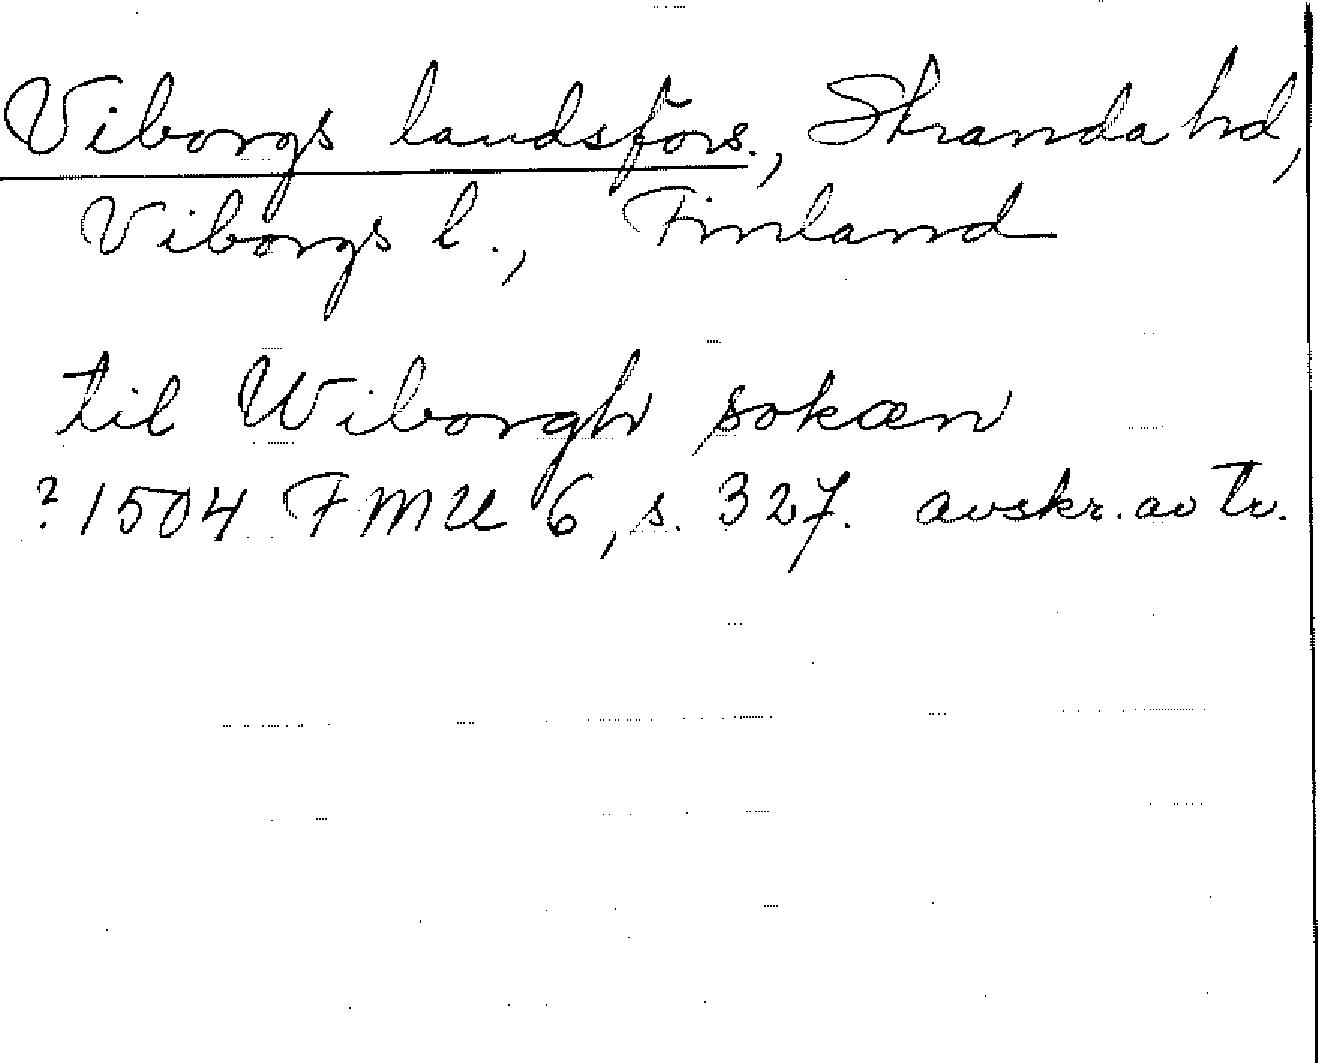 Viborgs landsförs., Stranda hd,
Viborgs l., Finland
til Wiborgh sokæn
? 1504 FMU 6, s. 327. avskr. av tr.